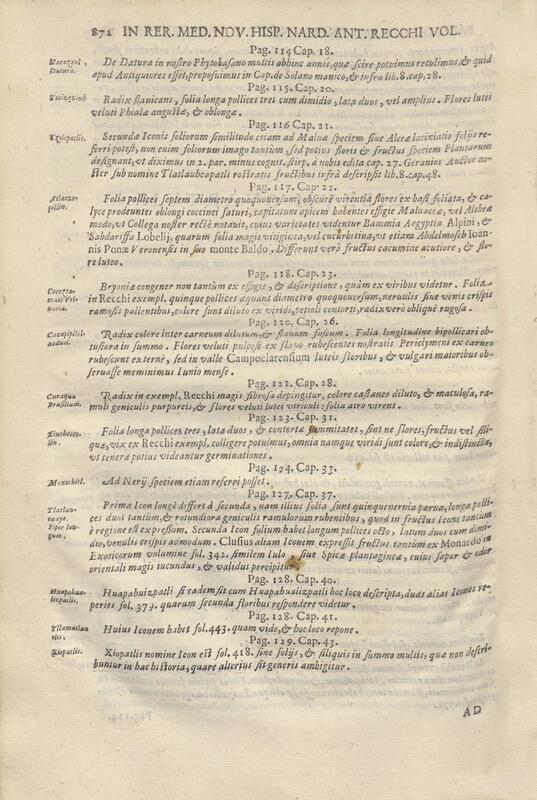 872 IN RER. MED. NOV. HISP. NARD. ANT. RECCHI VOL.
Pag. 114 Cap. 18.
Datura.
De Datura in nostro Phytobasano multis abhinc annis, quæ scire potuimus retulimus, & quid
apud Antiquiores esset, proposuimus in Cap. de Solano manico, & infra lib. 8. cap, 28.
Pag. 115. Cap. 20.
Radix flauicans, folia longa pollices tres cum dimidio, lata duos, vel amplius. Flores lutei
veluti Phiala angustæ, & oblongæ.
Pag. 116 Cap. 21.
Secundæ Iconis foliorum similitudo etiam ad Maluæ speciem siue Alceæ laciniatis folijs re-
ferri potest, non enim foliorum imago tantùm, sed potius floris & fructus speciem Plantarum
designant, vt diximus in 2. par. minus cognit. stirp. à nobis edita cap. 27. Geranios Auctor no-
ster sub nomine Tlatlaubcapatli rostratis fructibus infrà descripsit lib. 8. cap. 48.
Pag. 117. Cap. 22.
Folia pollices septem diametro quoquouersum, obscurè virentia flores ex basi foliata, & ca-
lyce prodeuntes oblongi coccinei saturi, capitatum apicem habentes effigie Maluaceæ, vel Altheæ
modo, vt Collega noster rectè notauit, cuius varietates videntur Bammia Aegyptia Alpini, &
Sabdariffa Lobelij, quarum folia magis vitiginea, vel cucurbitina, vt etiam Abdelmosch Ioan-
nis Ponæ Veronensis in suo monte Baldo. Differunt verò fructus cacumine acutiore, & flo-
re luteo.
Pag. 118. Cap. 23.
Bryoniæ congener non tantùm ex effigie, & descriptione, quàm ex viribus videtur. Folia
in Recchi exempl. quinque pollices æquant diametro quoquouersum, neruulis siue venis crispis
ramosis pallentibus, colore sunt diluto ex viridi, petioli contorti, radix verò obliquè rugosa.
Pag. 120, Cap. 26.
Radix colore inter carneum dilutum, & flauum fuscum. Folia longitudine bipollicari ob-
tusiora in summo. Flores veluti pulposi ex flauo rubescentes nostratis Periclymeni ex carneo
rubescunt externè, sed in valle Campoclarensium luteis floribus, & vulgari maioribus ob-
seruasse meminimus Iunio mense.
Pag. 121. Cap. 28.
Curaqua
Brasilium.
Radix in exempl, Recchi magis fibrosa depingitur, colore castaneo diluto, & maculosa, ra-
muli geniculis purpureis, & flores veluti lutei vtriculi: folia atro virent.
Pag. 123. Cap. 31.
Folia longa pollices tres, lata duos, & contorta summitates, sint ne flores, fructus vel sili-
quæ, vix ex Recchi exempl. colligere potuimus, omnia namque viridi sunt colore, & indistincta,
vt teneræ potius videantur germinationes.
Pag. 124. Cap. 33.
Ad Nerij speciem etiam referri posset.
Pag. 127. Cap. 37.
Piper lon-
gum.
Prima Icon longè differt à secunda, nam illius folia sunt quinqueneruia parua, longa polli-
ces duos tantum, & rotundiora geniculis ramulorum rubentibus, quod in fructus Icone tantùm
è regione est expressum. Secunda Icon folium habet longum pollices octo, latum duos cum dimi-
dio, venulis crispis admodum. Clusius aliam Iconem expressit fructus tantùm ex Monardo in
Exoticorum volumine fol. 342. similem Iulo, siue Spicæ plantagineæ, cuius sapor & odor
orientali magis iucundus, & validus percipitur.
Pag. 128. Cap. 40.
Huapahua-
lizpatlis.
Huapahuizpatli si eadem sit cum Huapahualizpatli hoc loco descripta, duas alias Icones re-
peries fol. 379. quarum secunda floribus respondere videtur.
Pag. 128. Cap. 41.
Huius Iconem habet fol. 443. quam vide, & hoc loco repone.
Pag. 129. Cap. 43.
Xiopatlis.
Xiopatlis nomine Icon est fol. 418. sine folijs, & siliquis in summo multis, quæ non descri-
buntur in hac historia, quare alterius sit generis ambigitur.
AD